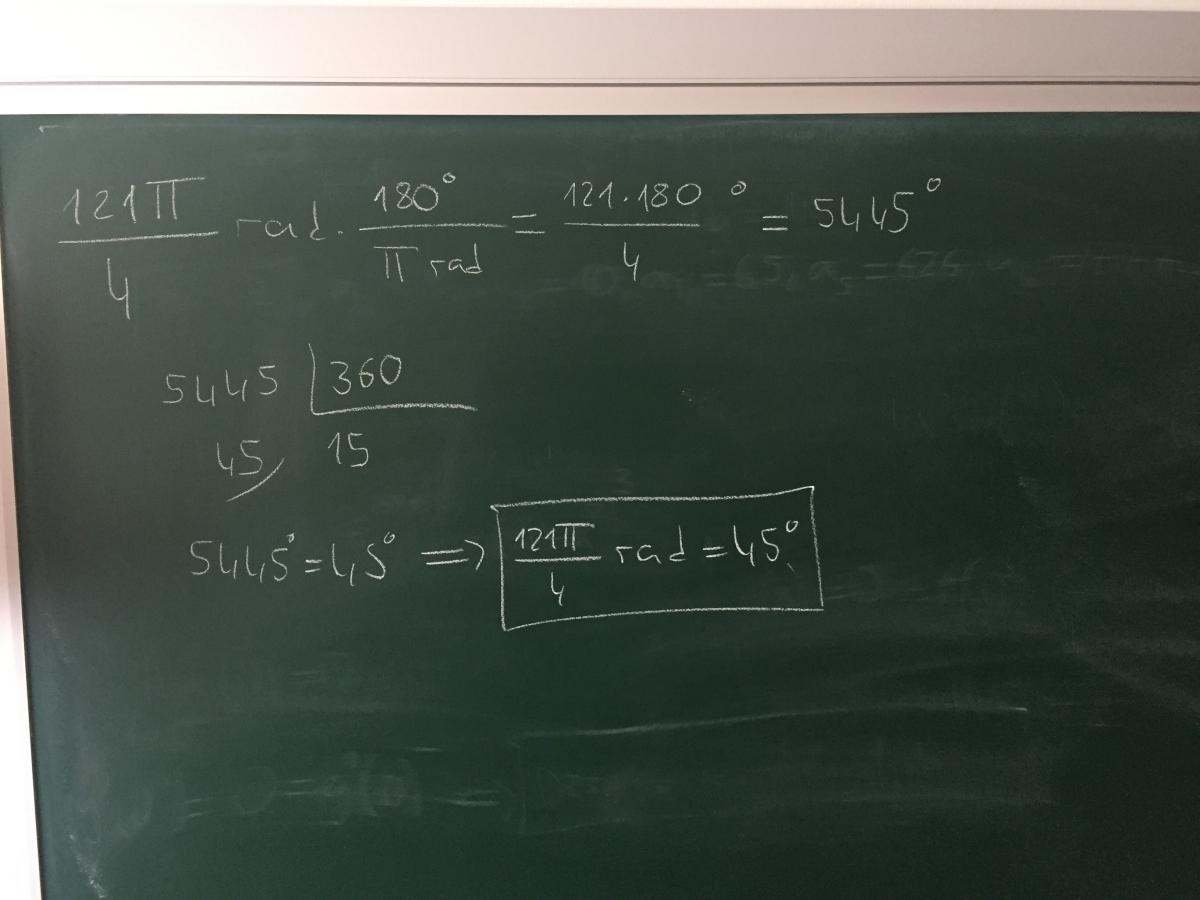 121π/4 rad · 180°/π rad = 121·180/4 ° = 5445°
5445 | 360
45 15
5445° = 45° ⇒ 121π/4 rad = 45°